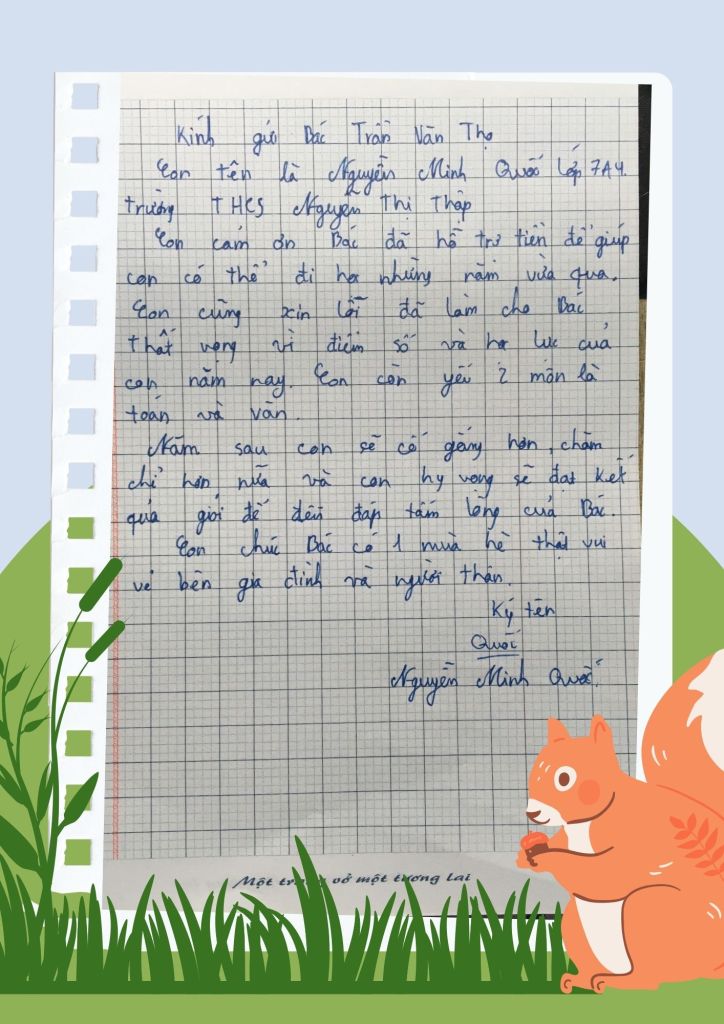 Kính gửi Bác Trần Văn Thọ
Con tên là Nguyễn Minh Quốc lớp 7A4.
trường THCS Nguyễn Thị Thập
Con cám ơn Bác đã hỗ trợ tiền để giúp
con có thể đi học những năm vừa qua.
Con cũng xin lỗi đã làm cho Bác
thất vọng vì điểm số và học lực của
con năm nay. Con còn yếu 2 môn là
toán và văn.
Năm sau con sẽ cố gắng hơn, chăm
chỉ hơn nữa và con hy vọng sẽ đạt kết
quả giỏi để đền đáp tấm lòng của Bác.
Con chúc Bác có 1 mùa hè thật vui
vẻ bên gia đình và người thân.
Ký tên
Quốc
Nguyễn Minh Quốc.
Một trang vở một tương lai